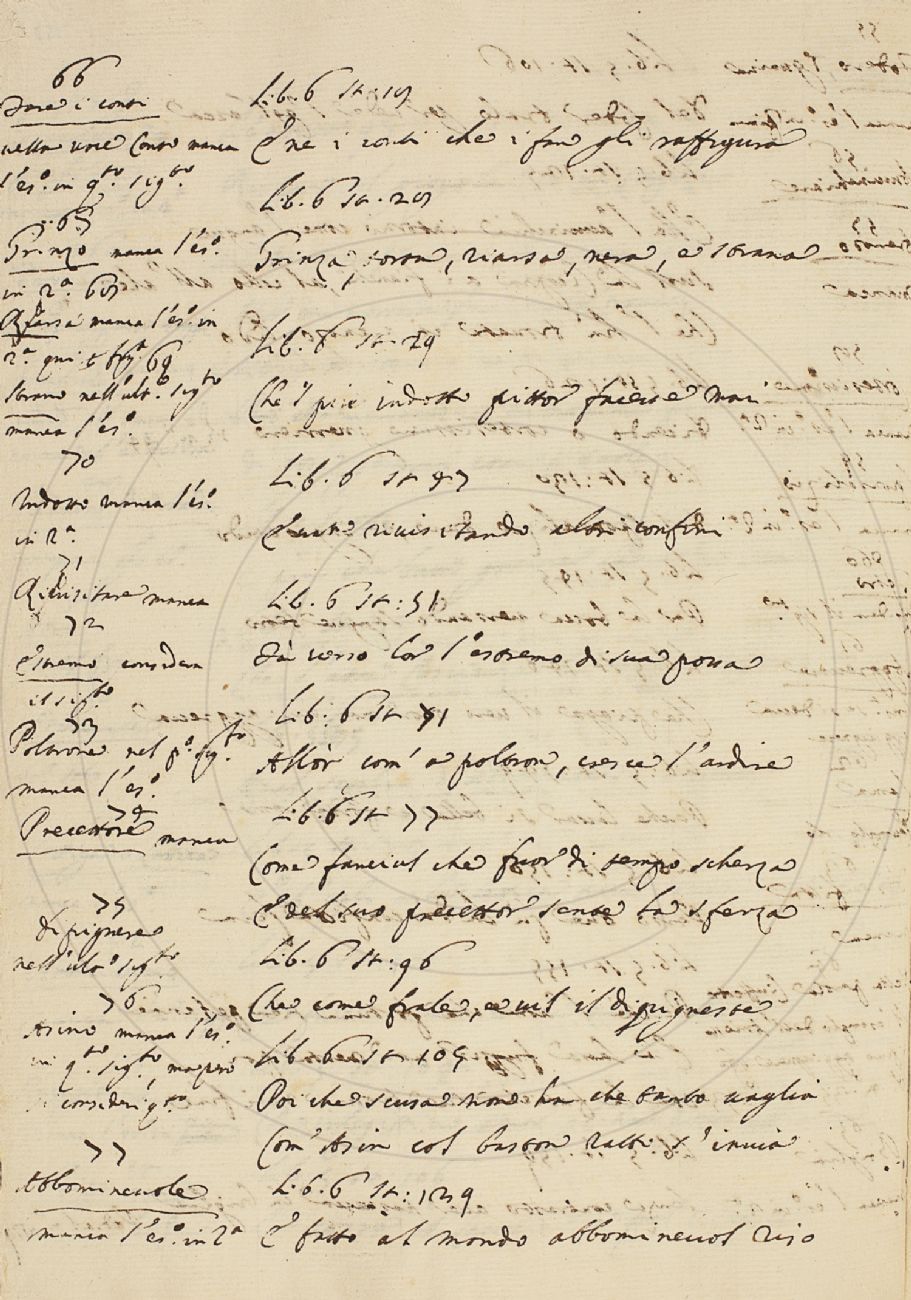 66
Fare i conti
nella voce Conto manca
l'es.º in q.to sig.to
Lib. 6 St. 19
E ne i conti che i fan gli raffigura
67
Grinzo manca l'es.º
in 2.ª
Lib. 6 St. 29
Grinza, torta, riarsa, nera, e strana
68
Riarsa manca l'es.º in
2.ª
69
Strano nell'ult.º sig.to
manca l'es.º
Lib. 6 St.
Che 'l più indotto pittor facesse mai
70
Indotto manca l'es.º
in 2.ª
Lib. 6 St 47
rivisitando altri confini
71
Rivisitare manca
72
Estremo consideri
il sig.to
Lib. 6 St: 51
Fa verso lor l'estremo di sua possa
73
Poltrone nel p.º sig.to
manca l'es.º
Lib: 6 St 71
Allor com' a poltron, cresce l'ardire
74
Precettore manca
Lib. 6 St 77
Come fanciul che fuor di tempo scherza
E del suo precettor sente la sferza
75
Dipignere
nell'ult.º sig.to
Lib. 6 St: 96
Che come frale, e vil il dipignesse
76
Asino manca l'es.º
in q.to sig.to, mapero
si consideri q.to
Lib. 6 St 105
Poi che scusa non ha che tanto vaglia
Com' Asin col baston ratti s' invia
77
Abbominevole
manca l'es.º in 2ª
Lib. 6 St: 129
E fatto al mondo abbominevol riso